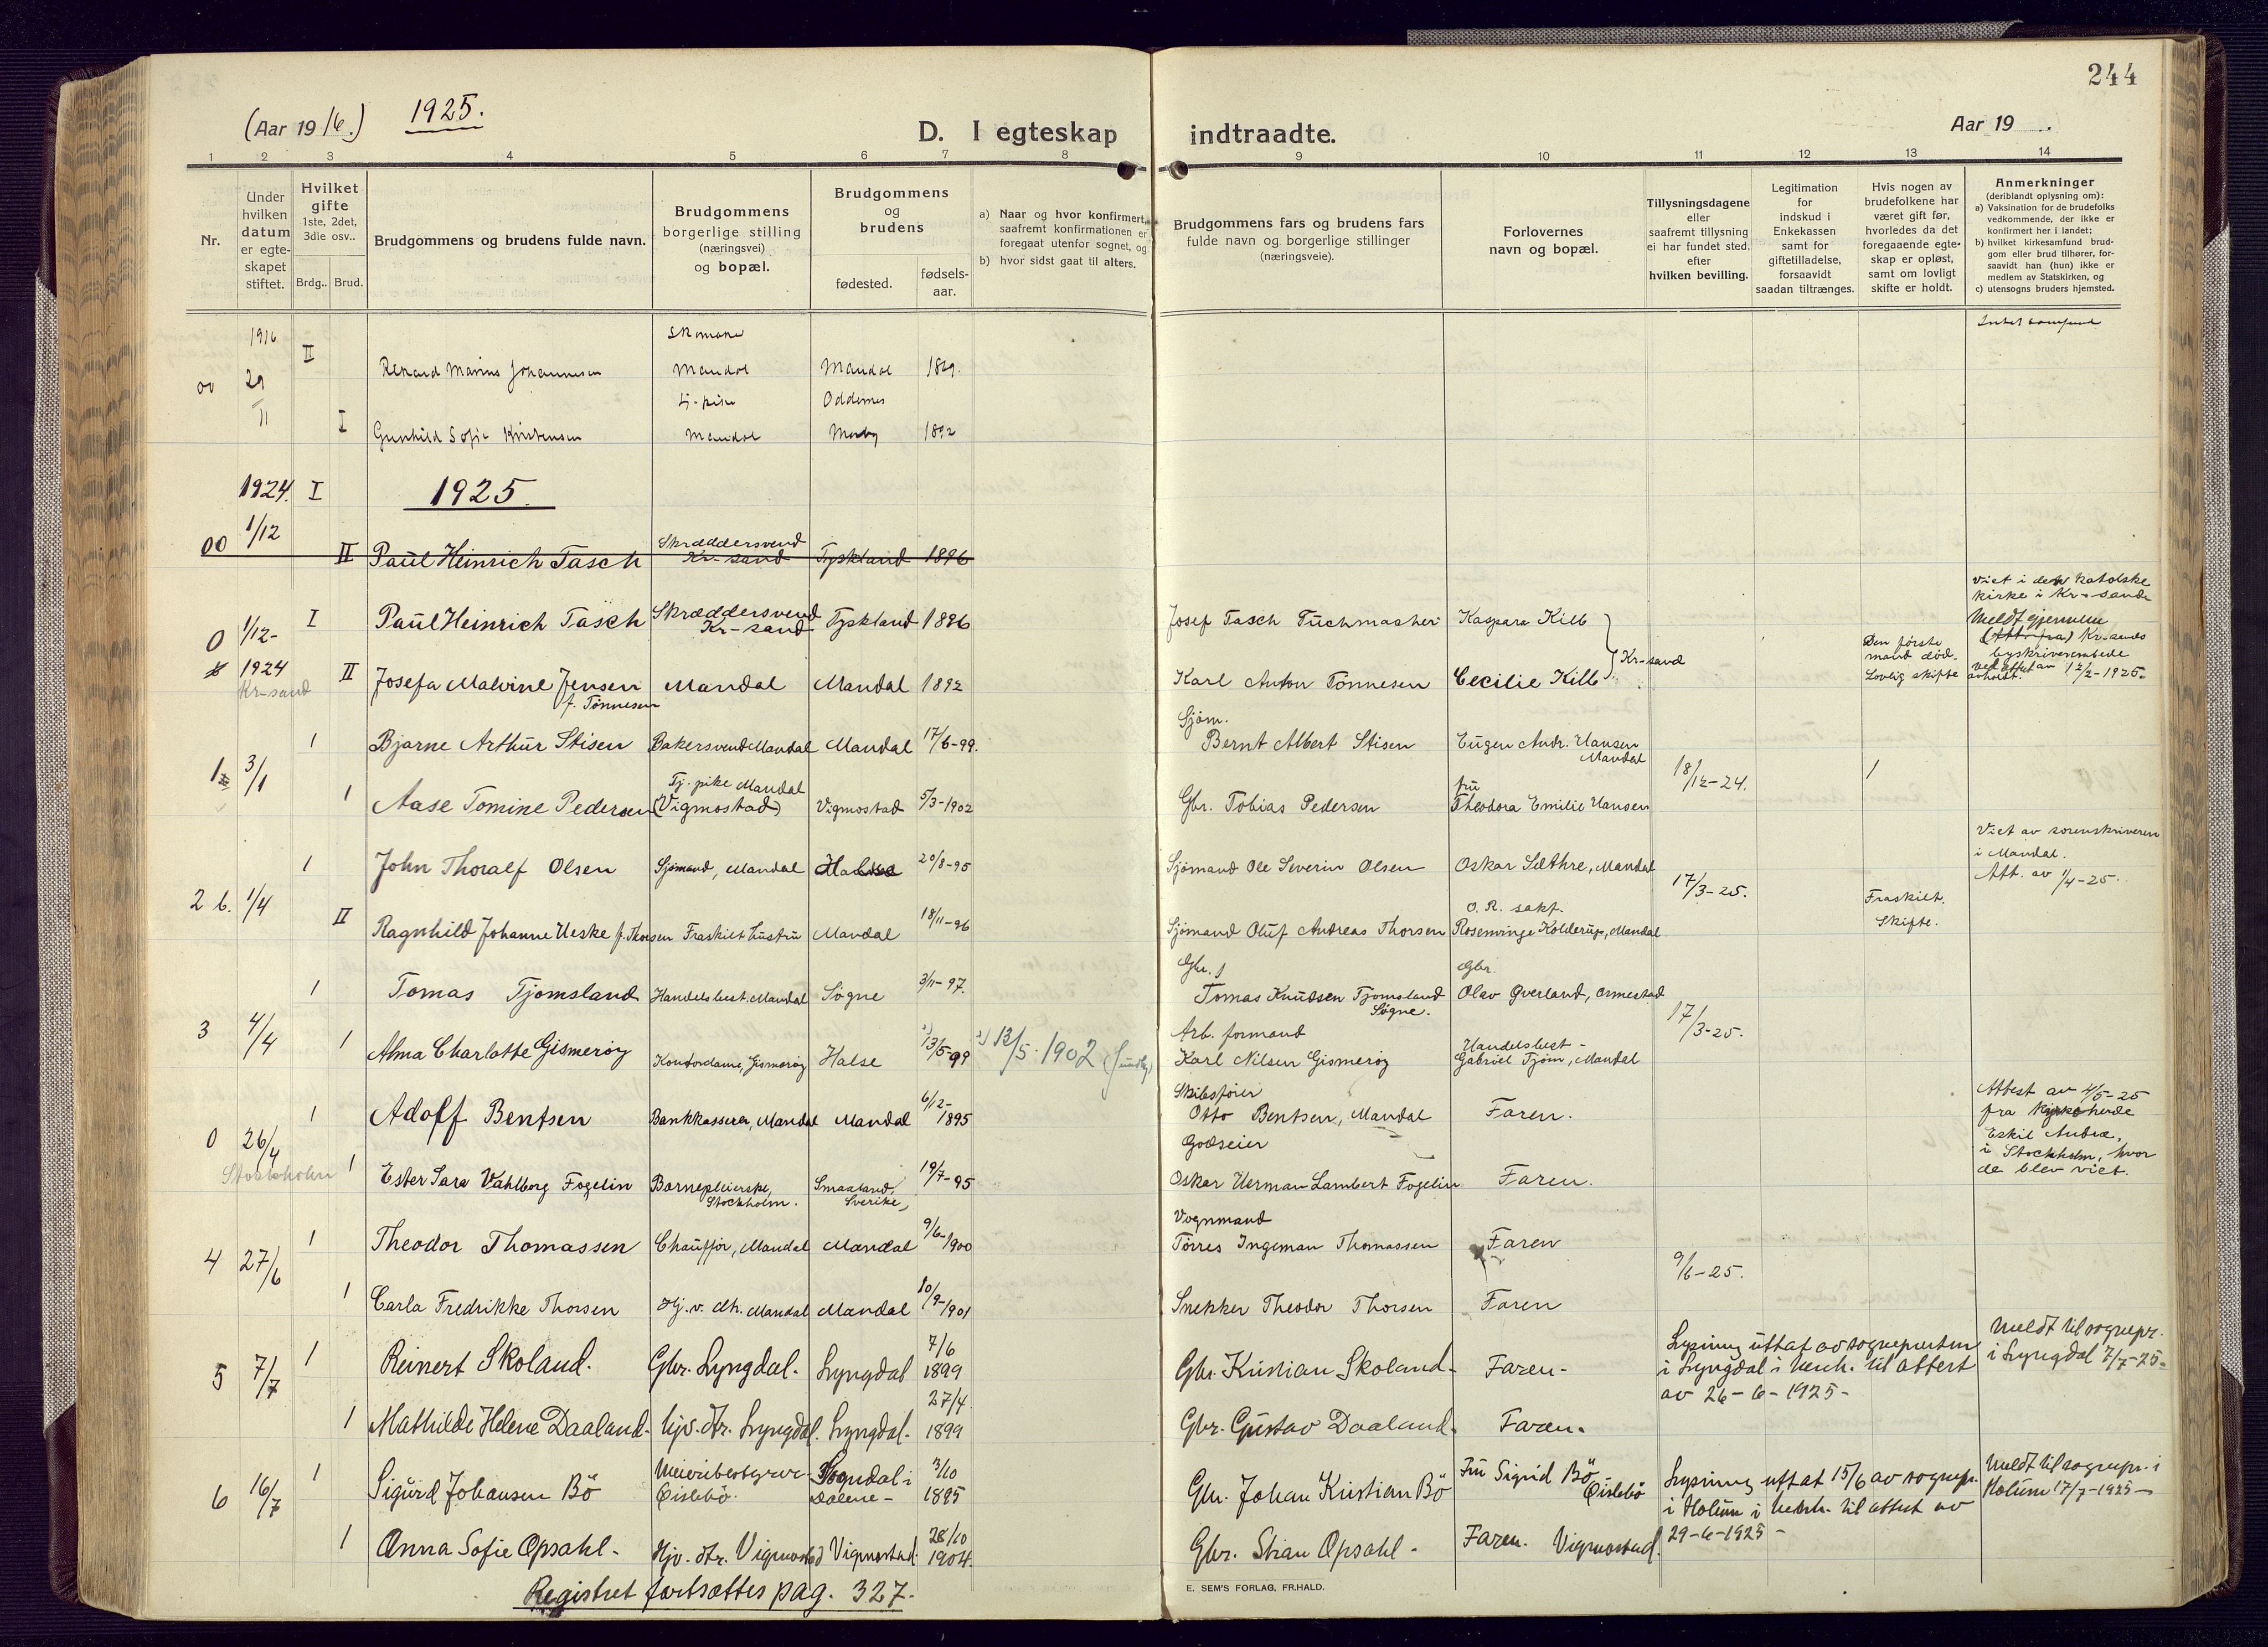 244
(Aar 1916.) 1925.
D. I egteskap indtraadte.
Aar 19 .
1 2 3 4 5 6 7 8 9 10 11 12 13 14
Nr.
Under hvilken datum er egteskapet stiftet.
Hvilket gifte 1ste, 2det, 3die osv..
Brdg.. Brud.
Brudgommens og brudens fulde navn.
Brudgommens borgerlige stilling (næringsvei) og bopæl.
Brudgommens og brudens
fødested. fødsels-aar.
a) Naar og hvor konfirmert, saafremt konfirmationen er foregaat utenfor sognet, og
b) hvor sidst gaat til alters.
Brudgommens fars og brudens fars fulde navn og borgerlige stillinger (næringsveie).
Forlovernes navn og bopæl.
Tillysningsdagene eller saafremt tillysning ei har fundet sted. efter hvilken bevilling.
Legitimation for indskud i Enkekassen samt for giftetilladelse, forsaavidt saadan tiltrænges.
Hvis nogen av brudefolkene har været gift før, hvorledes da det foregaaende egte-skap er opløst, samt om lovligt skifte er holdt.
Anmerkninger (deriblandt oplysning om):
a) Vaksination for de brudefolks vedkommende, der ikke er konfirmert her i landet;
b) hvilket kirkesamfund brudgom eller brud tilhører, forsaavidt han (hun) ikke er medlem av Statskirken, og
c) utensogns bruders hjemsted.
1916 II
Marius Johannesen Mandal Mandal 1869.
29/11
Tj. pike Oddernes
I Gunhild Sofie Kristensen Mandal Mosby 1892
1924. I 1925.
00 1/12 II Paul Heinrich Tasch Skræddersvend Kr-sand Tyskland 1896
0 1/12- 1924 Kr-sand I Paul Heinrich Tasch Skræddersvend Kr-sand Tyskland 1896 Josef Tasch Tuchmacher Kaspara Kilb
Kr-sand
Viet i den katolske kirke i Kr-sand
Meldt gjennem (Att. fra) Kr-sands byskriverembede ved attest av 12/2-1925-
II Josefa Malvine Jensen f. Tønnesen Mandal Mandal 1892 Karl Anton Tønnesen Cecilie Kilb
Den første mand død- Lovlig skifte avholdt.
1 3/1 1 Bjarne Arthur Stisen Bakersvend Mandal Mandal 17/6-99. Sjøm. Bernt Albert Stisen Eugen Andr. Hansen Mandal
18/12-24. 1
1 Aase Tomine Pedersen Tj. pike Mandal (Vigmostad) Vigmostad 5/3-1902 Gbr. Tobias Pedersen fru Theodora Emilie Hansen
2 b. 1/4 1 John Thoralf Olsen Sjømand, Mandal 20/8-95 Sjømand Ole Severin Olsen Oskar Sæthre, Mandal
17/3-25.
Viet av sorenskriveren i Mandal. Att. av 1/4-25.
II Ragnhild Johanne Heske f. Thorsen Fraskilt hustru Mandal 18/11-96 Sjømand Oluf Andreas Thorsen O. R. sakf. Rosenvinge Kolderup, Mandal
Fraskilt. Skifte.
3 4/4 1 Tomas Tjomsland Handelsbest. Mandal Søgne 3/11-97. Gbr. Tomas Knudsen Tjomsland Søgne. Gbr. Olav Øverland, Ormestad
17/3-25.
1 Alma Charlotte Gismerøy Kontordame, Gismerøy Halse 13/5-99 12/5-1902 Arb. formand Karl Nilsen Gismerøy Handelsbest- Gabriel Tjøm, Mandal
0 26/4 Stockholm 1 Adolf Bentsen Bankkasserer, Mandal Mandal 6/12-1895 Skibsfører Otto Bentsen, Mandal Faren.
Attest av 4/5-25 fra Kyrkoherde Eskil Andræ, i Stockholm, hvor de blev viet.
1 Ester Sara Vahlborg Fogelin Barnepleierske, Stockholm. Smaaland, Sverike, 19/7-95 Godseier Oskar Herman Lambert Fogelin Faren.
4 27/6 1 Theodor Thomassen Chauffør, Mandal Mandal 9/6-1900 Vognmand Tørres Ingeman Thomassen Faren
9/6-25.
1 Carla Fredrikke Thorsen Hj. v. dtr. Mandal Mandal 10/9-1901 Snekker Theodor Thorsen Faren
5 7/7 1 Reinert Skoland. Gbr. Lyngdal. Lyngdal 7/6 1899 Gbr. Kristian Skoland- Faren-
Lysning uttat av sogneprsten i Lyngdal i henh. til attest av 26-6-1925-
Meldt til sognepr. i Lyngdal 7/7-25-
1 Mathilde Helene Daaland- Hjv. dtr. Lyngdal. Lyngdal- 27/4 1899 Gbr. Gustav Daaland- Faren.
6 16/7 1 Sigurd Johansen Bö Meieribestyrer- Öislebö. Sogndal i Dalene- 3/10 1895 Gbr. Johan Kristian Bö Fru Sigrid Bö Öislebö
Lysning uttat 15/6 av sognepr. i Holum i henh. til attest av 29-6-1925-
Meldt til sognepr. i Holum 17/7-1925-
1 Anna Sofie Opsahl- Hjv. dtr. Vigmostad Vigmostad. 28/10 1904. Gbr. Stian Opsahl- Faren. Vigmostad.
Registret fortsættes pag. 327.
E. SEM'S FORLAG, FR.HALD.